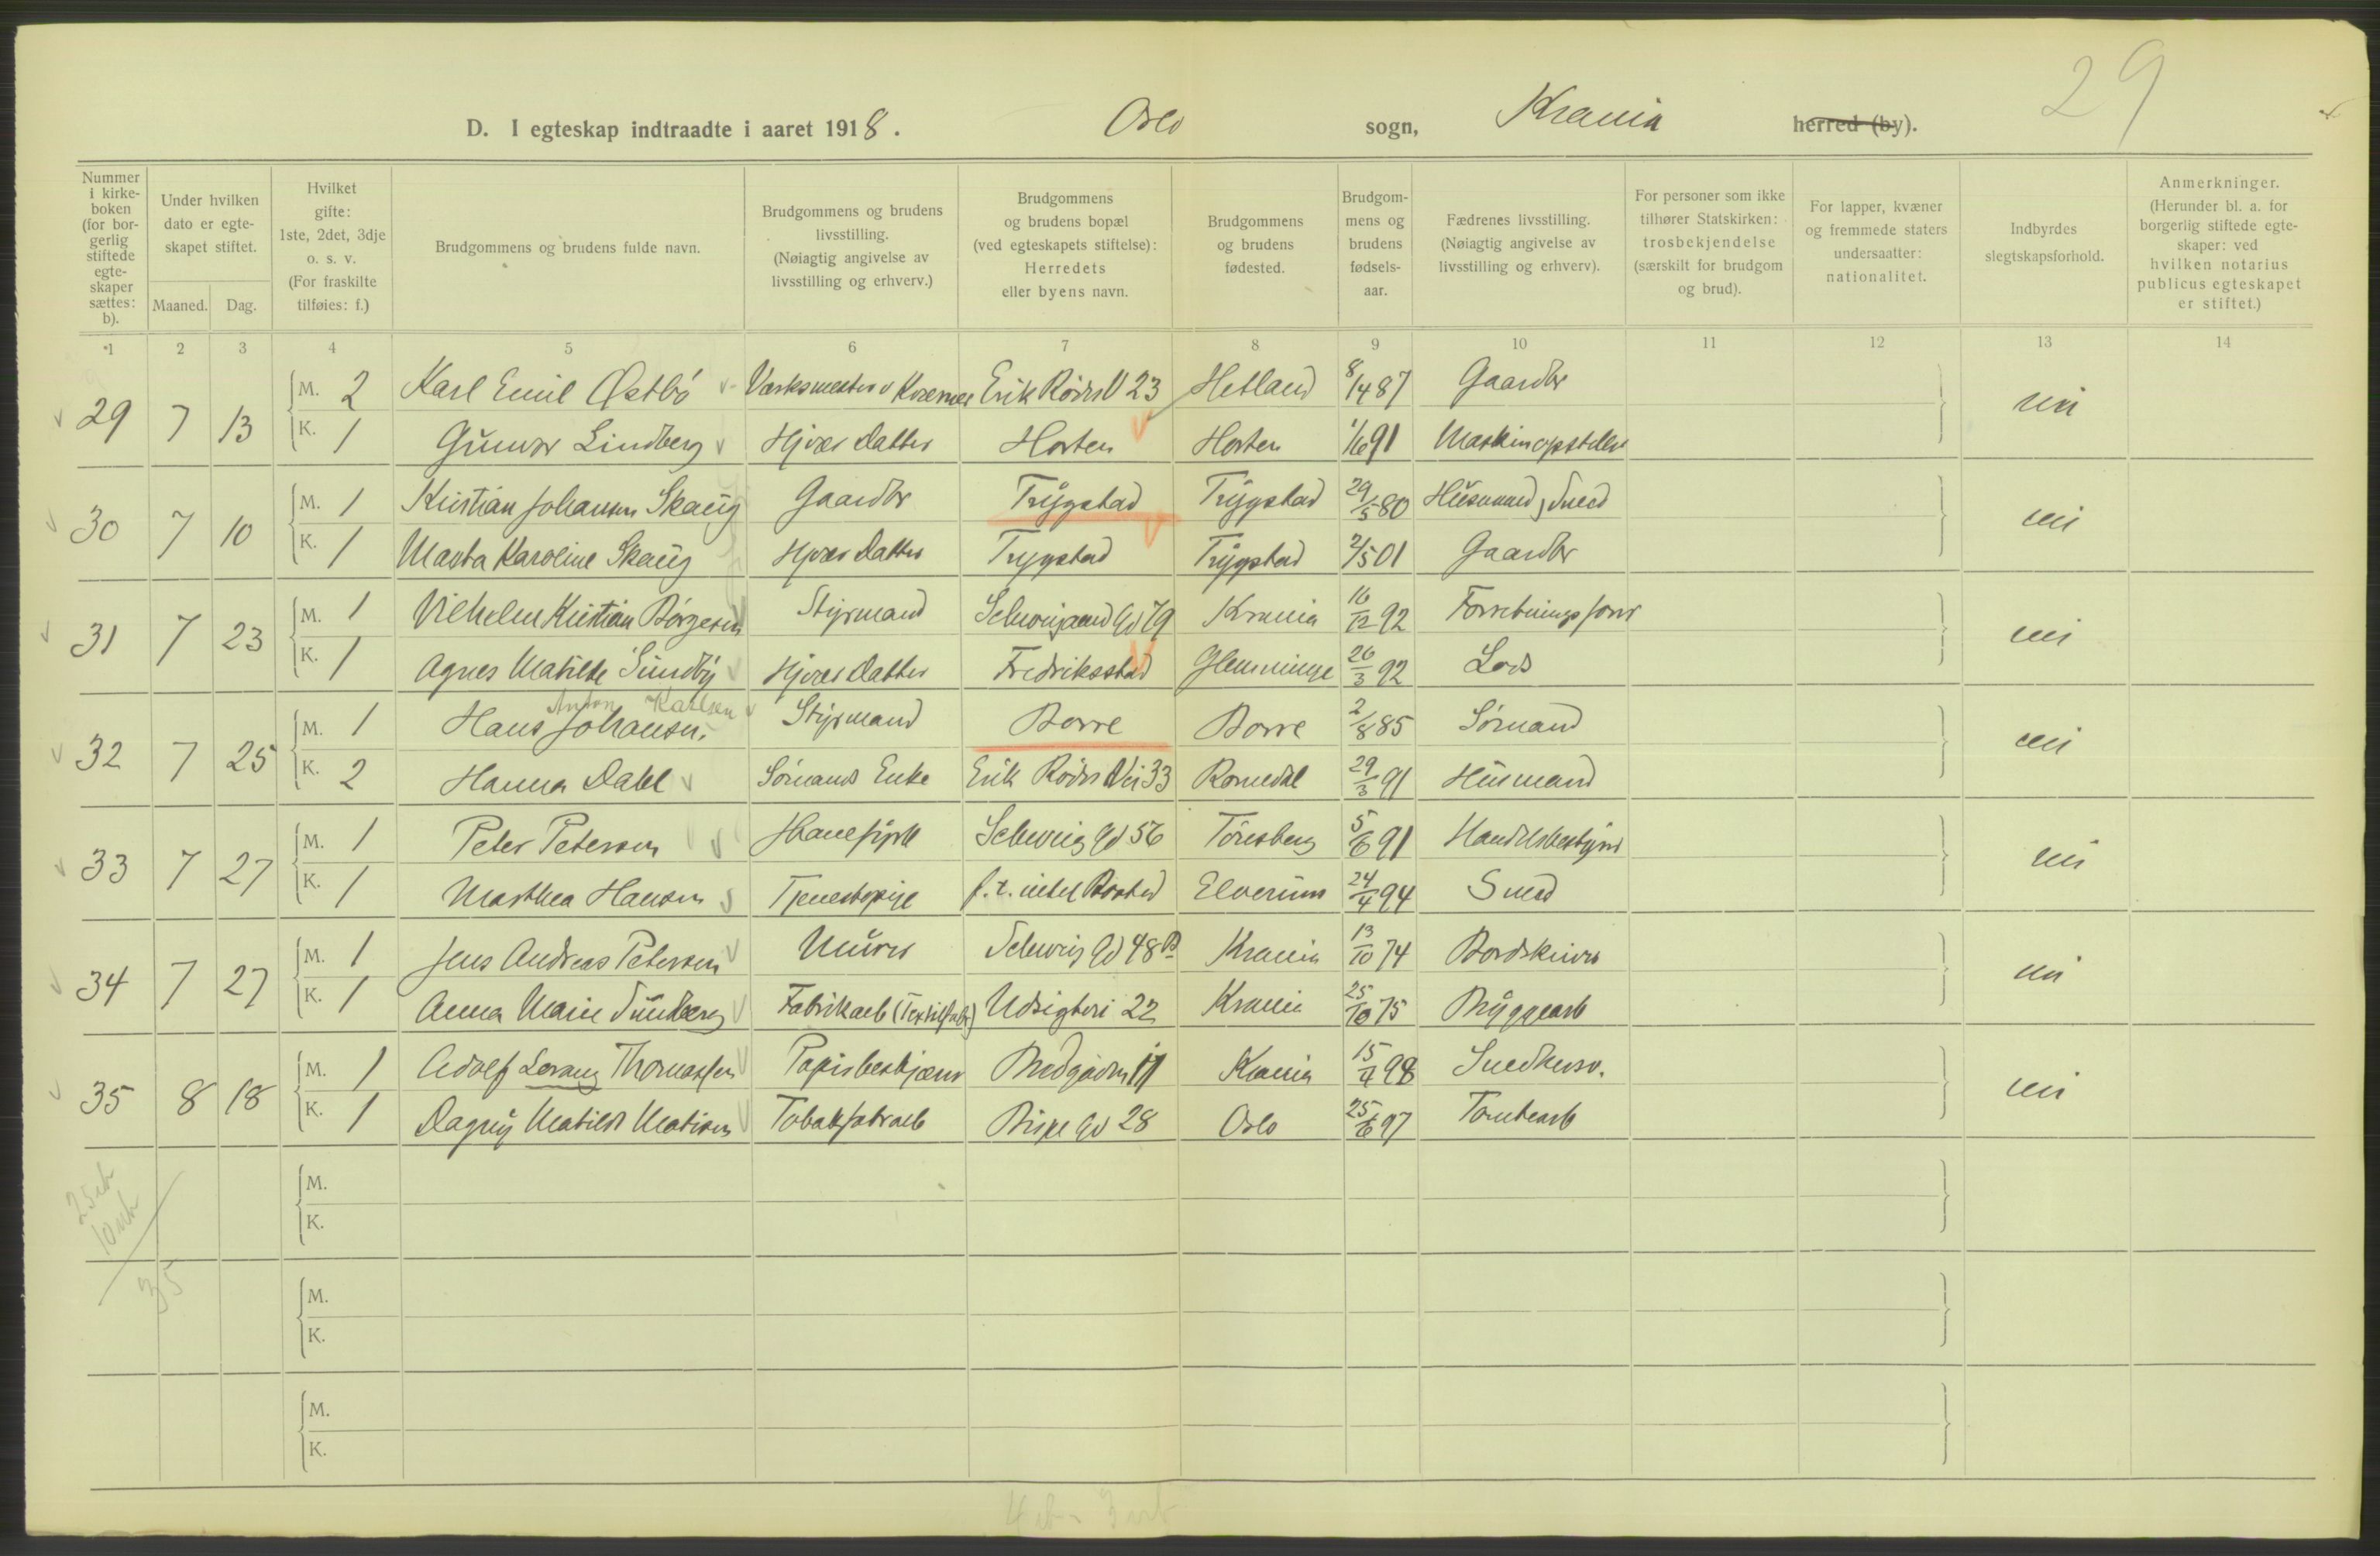 29
D. I egteskap indtraadte i aaret 1918. Oslo sogn, Krania herred (by).
Nummer i kirkeboken (for borgerlig stiftede egteskaper sættes: b).
Under hvilken dato er egteskapet stiftet.
Maaned. Dag.
Hvilket gifte: 1ste, 2det, 3dje o. s. v. (For fraskilte tilføies: f.)
Brudgommens og brudens fulde navn.
Brudgommens og brudens livsstilling. (Nøiagtig angivelse av livsstilling og erhverv.)
Brudgommens og brudens bopæl (ved egteskapets stiftelse): Herredets eller byens navn.
Brudgommens og brudens fødested.
Brudgommens og brudens fødselsaar.
Fædrenes livsstilling. (Nøiagtig angivelse av livsstilling og erhverv).
For personer som ikke tilhører Statskirken: trosbekjendelse (særskilt for brudgom og brud).
For lapper, kvæner og fremmede staters undersaatter: nationalitet.
Indbyrdes slegtskapsforhold.
Anmerkninger. (Herunder bl. a. for borgerlig stiftede egteskaper: ved hvilken notarius publicus egteskapet er stiftet.)
1 2 3 4 5 6 7 8 9 10 11 12 13 14
29 7 13 M. 2 Karl Emil Østbö Værksmester v Hetland 8/4 87 Gaardbr nei
Erik Rödes V 23
K. 1 Gunvor Lindberg Hjvær Datter Horten Horten 1/6 91 Maskinopstiller
30 7 10 M. 1 Kristian Johansen Skaug Gaardbr Trygstad Trygstad 29/5 80 Husmand, Smed nei
K. 1 Marta Karoline Skaug Hjvær Datter Trygstad Trygstad 2/5 01 Gaardbr
31 7 23 M. 1 Vilhelm Kristian Börgesen Styrmand Schweigaard Gd 79 Krania 16/12 92 Forretningsförer nei
K. 1 Agnes Matilde Sundby Hjvær Datter Fredriksstad Glemminge 26/3 92 Lods
Anton Karlsen
32 7 25 M. 1 Hans Johansen. Styrmand Borre Borre 2/8 85 Sömand nei
K. 2 Hanna Dahl Sömands Enke Erik Rödes Vei 33 Romedal 29/3 91 Husmand
33 7 27 M. 1 Peter Petersen Schweig Gd 56 Tönsberg 5/6 91 Handelsbestyrer nei
K. 1 Marthea Hansen Tjenestepige f. t. uden Bosted Elverum 24/4 94 Smed
34 7 27 M. 1 Jens Andreas Petersen Murer Schweig Gd 48 B Krania 13/10 74 Bordskriver nei
K. 1 Anna Marie Sundberg Fabrikarb (Textilfabr) Udsigten 22 Krania 25/10 75 Bryggearb
35 8 18 M. 1 Adolf Lorang Thomassen Papirbeskjærer Bredgaden 11 Krania 15/4 98 Snedkersv. nei
K. 1 Dagny Matilde Matisen Tobakfabrarb Bispe Gd 28 Oslo 25/6 97 Tomtearb
M.
K.
35
M.
K.
M.
K.